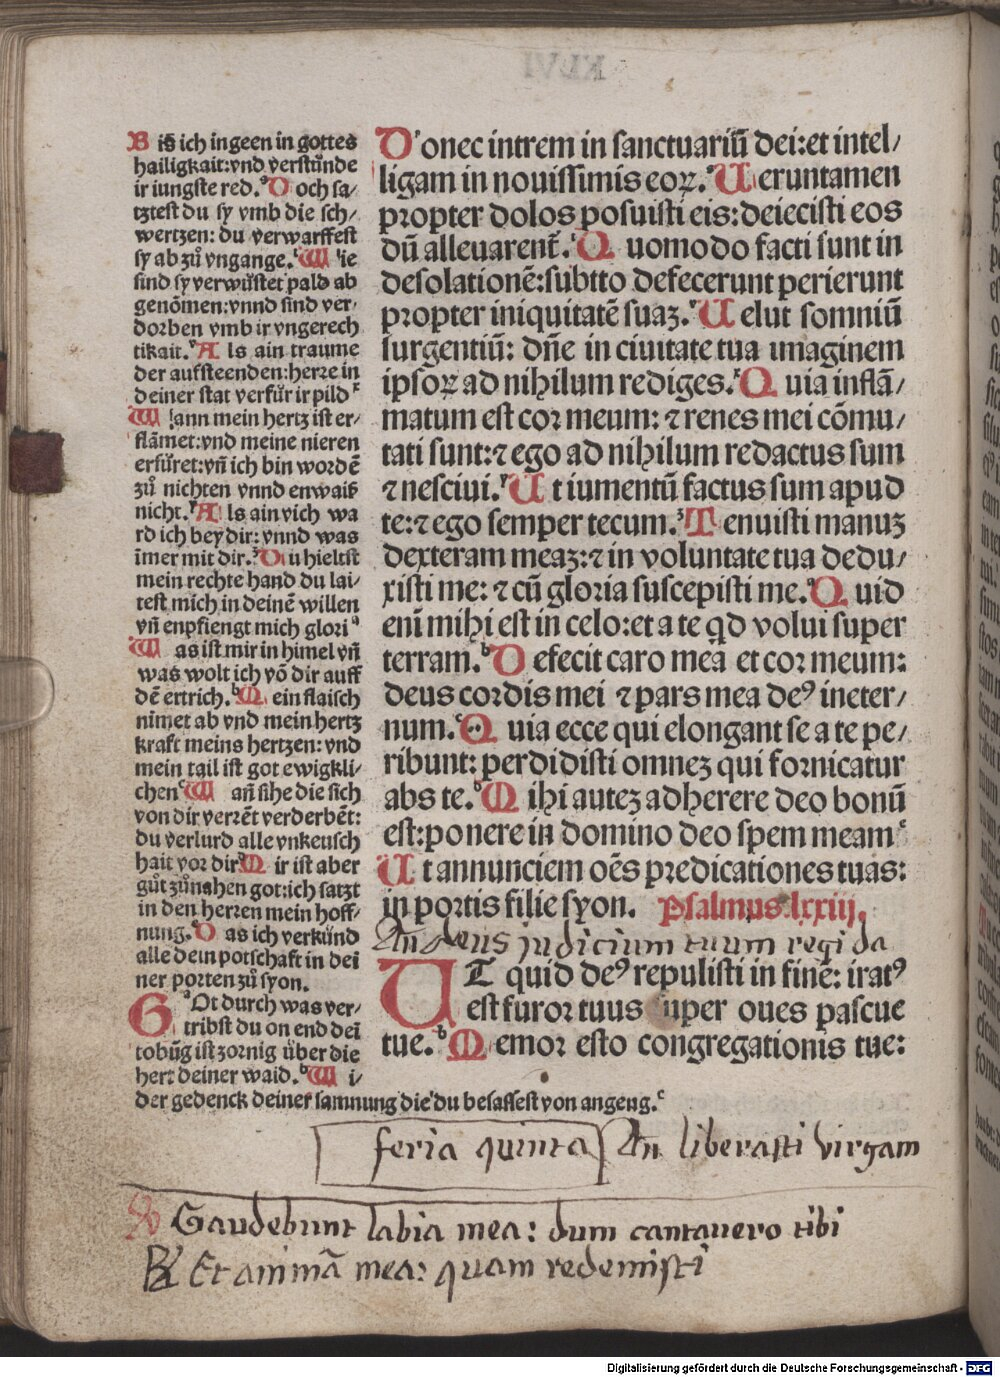 Bis̄ ich ingeen in gottes
hailigkait:vnd verstūnde
ir iungste red. Doch sa/
tztest du sy vmb die sch/
wertzen: du verwarffest
sy ab zů vngange. Wie
sind sy verwůstet pald ab
genōmen:vnnd sind ver/
dorben vmb ir vngerech
tikait. Als ain traume
der aufsteenden:herre in
deiner stat verfůr ir pild
Wann mein hertz ist er/
flāmet:vnd meine nieren
erfüret:vn̄ ich bin wordē
zů nichten vnnd enwaiß
nicht. Als ain vich wa
rd ich bey dir: vnnd was
īmer mit dir. Du hieltst
mein rechte hand du lai/
test mich in deinē willen
vn̄ enpfiengt mich glori
Was ist mir in himel vn̄
was wolt ich vō dir auff
dē ertrich. Mein flaisch
nimet ab vnd mein hertz
kraft meins hertzen: vnd
mein tail ist got ewigkli/
chen Wan̄ sihe die sich
von dir verrēt verderbēt:
du verlurd alle vnkeusch
hait vor dir Mir ist aber
gůt zůnahen got:ich satzt
in den herren mein hoff/
nung. Das ich verkünd
alle dein potschaft in dei
ner porten zů syon.
GOt durch was ver/
tribst du on end dei
tobūg ist zornig über die
hert deiner waid. Wi/
der gedenck deiner samnung die du besassest von angeng.
Donec intrem in sanctuariū dei:et intel/
ligam in nouissimis eoꝝ. Ueruntamen
propter dolos posuisti eis:deiecisti eos
dū alleuarent̄. Quomodo facti sunt in
desolationē:subito defecerunt perierunt
propter iniquitatē suaꝫ. Uelut somniū
surgentiū: dn̄e in ciuitate tua imaginem
ipsoꝝ ad nihilum rediges. Quia inflā/
matum est cor meum: ⁊ renes mei cōmu/
tati sunt:⁊ ego ad nihilum redactus sum
⁊ nesciui. Ut iumentū factus sum apud
te:⁊ ego semper tecum. Tenuisti manuꝫ
dexteram meaꝫ:⁊ in voluntate tua dedu/
xisti me: ⁊ cū gloria suscepisti me. Quid
eni̅ mihi est in celo:et a te qd̄ volui super
terram. Defecit caro mea et cor meum:
deus cordis mei ⁊ pars mea deꝰ in eter/
num. Quia ecce qui elongant se a te pe/
ribunt: perdidisti omneꝫ qui fornicatur
abs te. Mihi auteꝫ adherere deo bonū
est:ponere in domino deo spem meam
Ut annunciem oēs predicationes tuas:
in portis filie syon. Psalmus lxxiij.
An̄ deus judicium tuum regi da
UT quid deꝰ repulisti in finē: iratꝰ
est furor tuus super oues pascue
tue. Memor esto congregationis tue:
feria quinta An̄ liberasti virgam
Gaudebunt labia mea: dum cantauero tibi
Et animā mea: quam redemisti
Digitalisierung gefördert durch die Deutsche Forschungsgemeinschaft - DFG